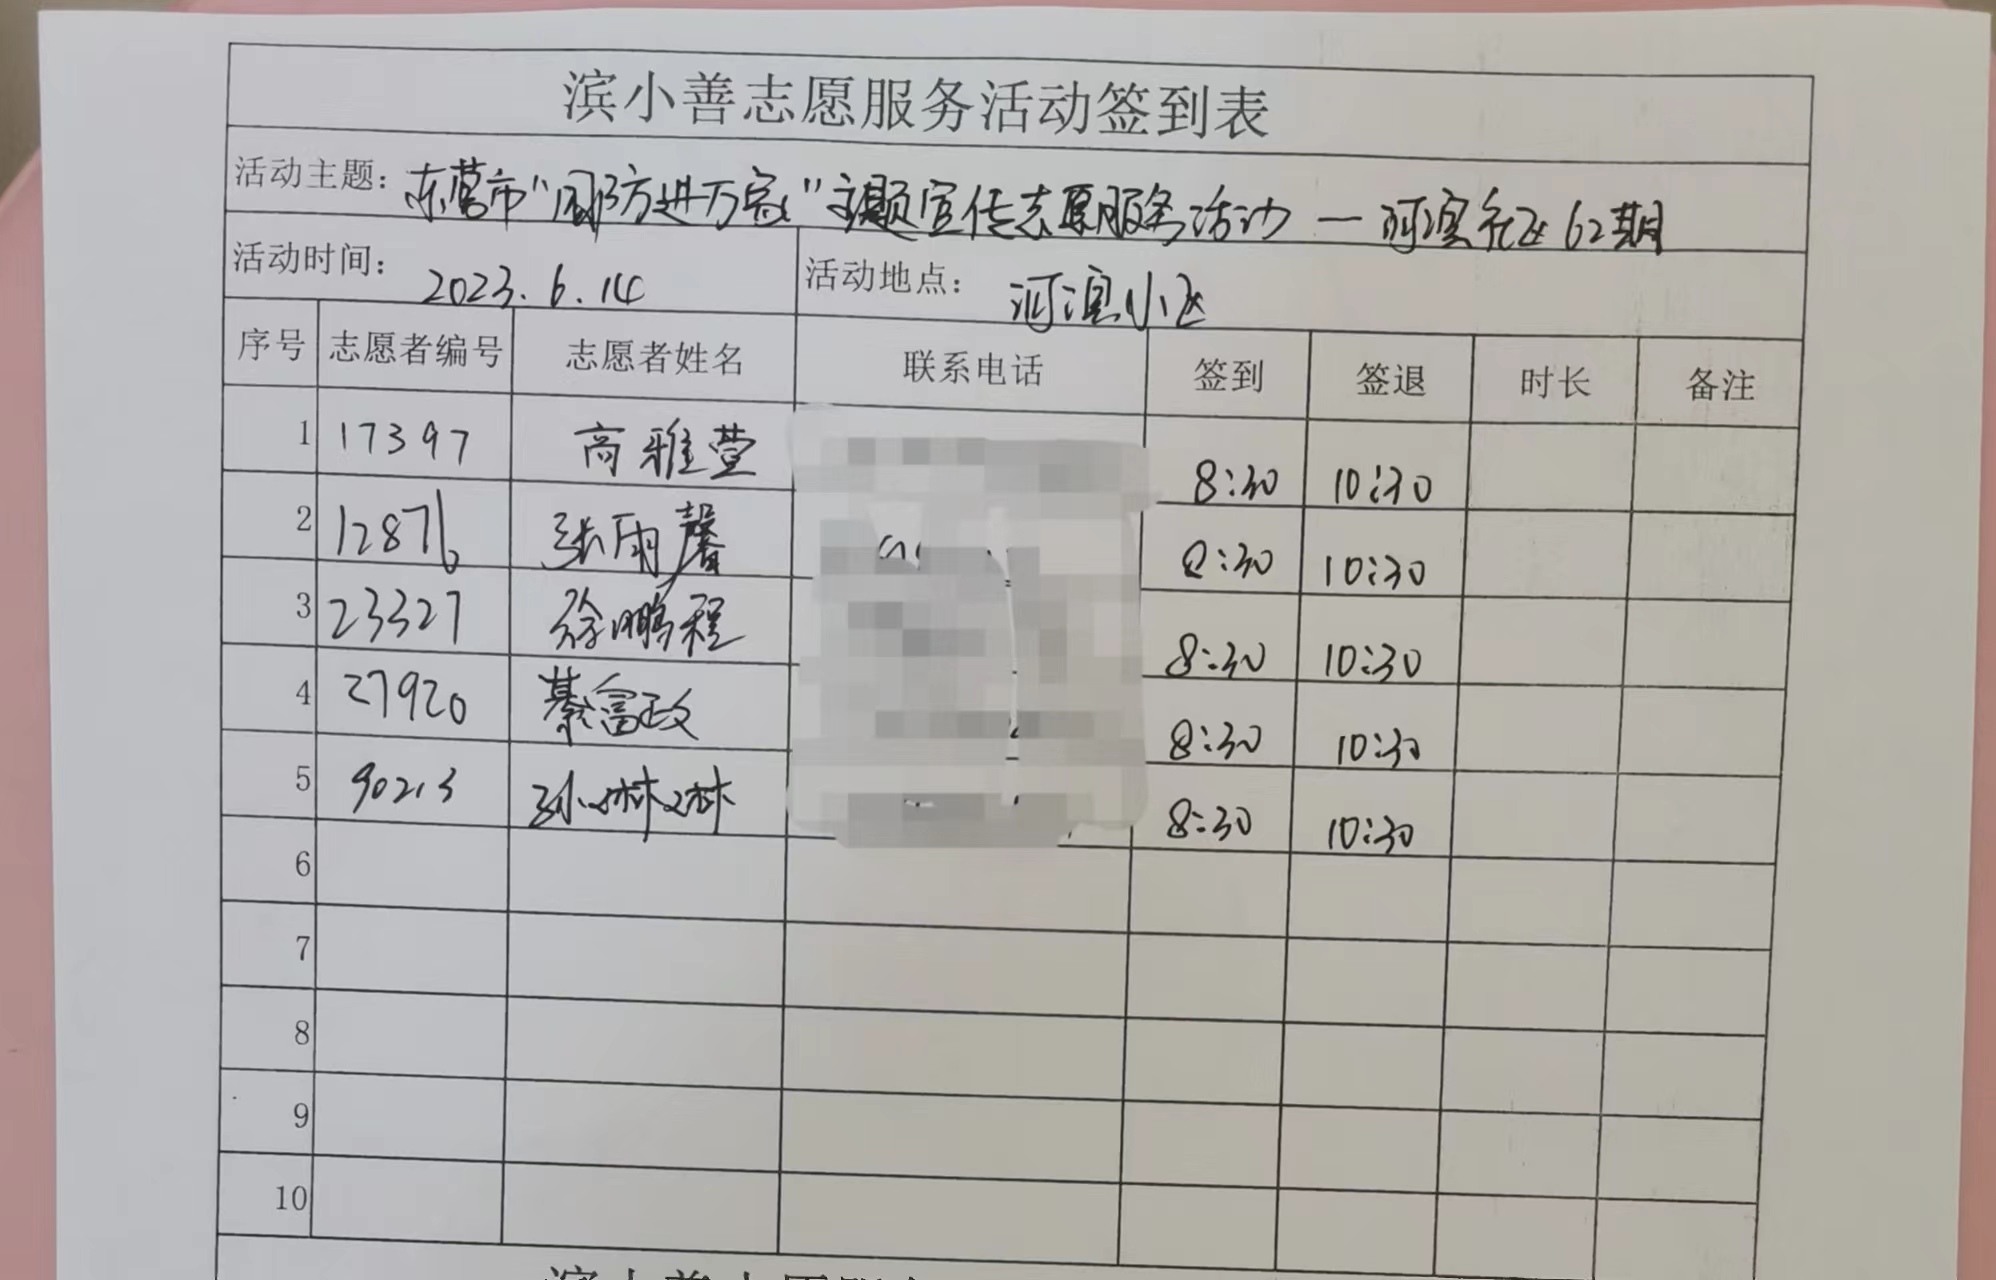 滨小善志愿服务活动签到表
活动主题: 东营市"国防进万家"主题宣传志愿服务活动—河滨社区62期
活动时间: 2023.6.14 活动地点: 河滨小区
序号 志愿者编号 志愿者姓名 联系电话 签到 签退 时长 备注
1 17397 高雅萱 8:30 10:30
2 12876 张雨馨 8:30 10:30
3 23327 徐鹏程 8:30 10:30
4 27920 綦富政 8:30 10:30
5 90213 孙琳琳 8:30 10:30
6
7
8
9
10